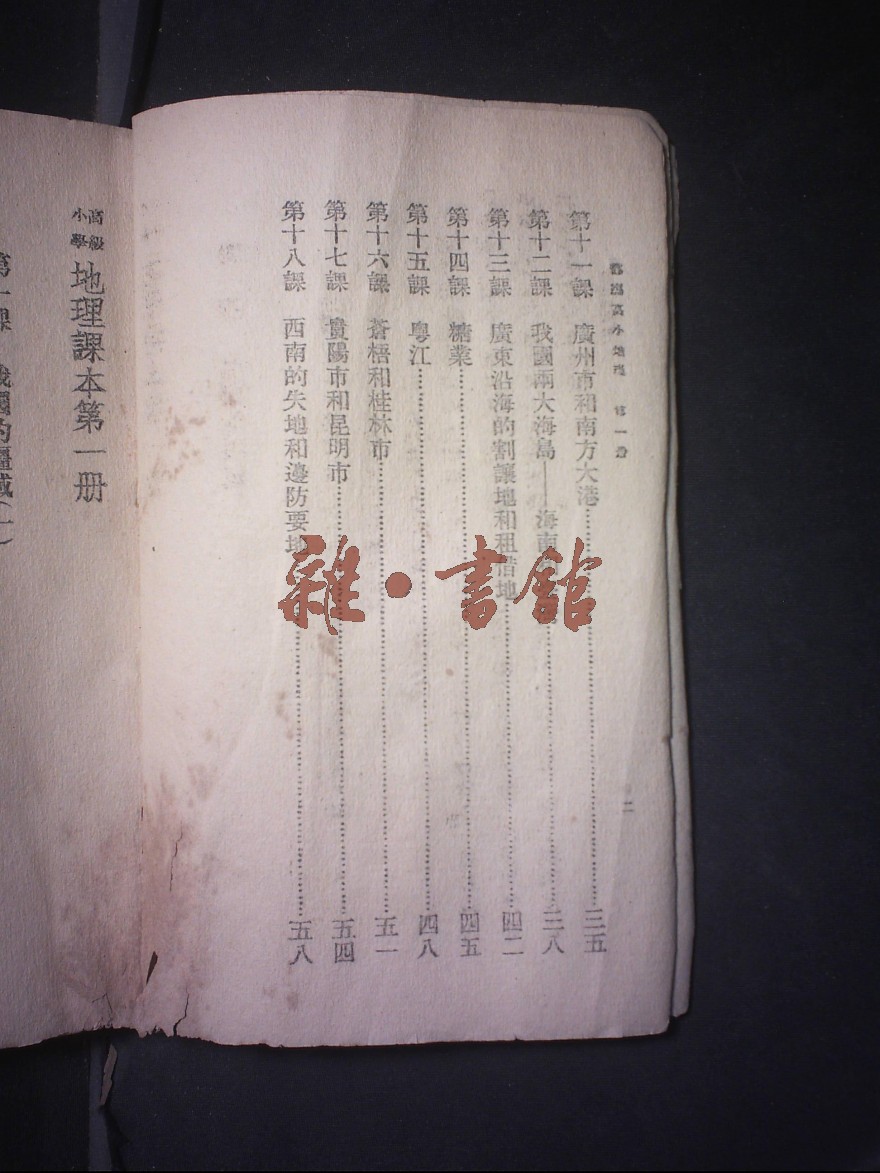 第一册
二
第十一課 廣州市和南方大港……三五
第十二課 我國兩大海島——海南……三八
第十三課 廣東沿海的割讓地和租借地……四二
第十四課 糖業……四五
第十五課 粵江……四八
第十六課 蒼梧和桂林市……五一
第十七課 貴陽市和昆明市……五四
第十八課 西南的失地和邊防要地……五八
高級小學 地理課本第一册
第一課 我國的疆域(一)
雜·書館